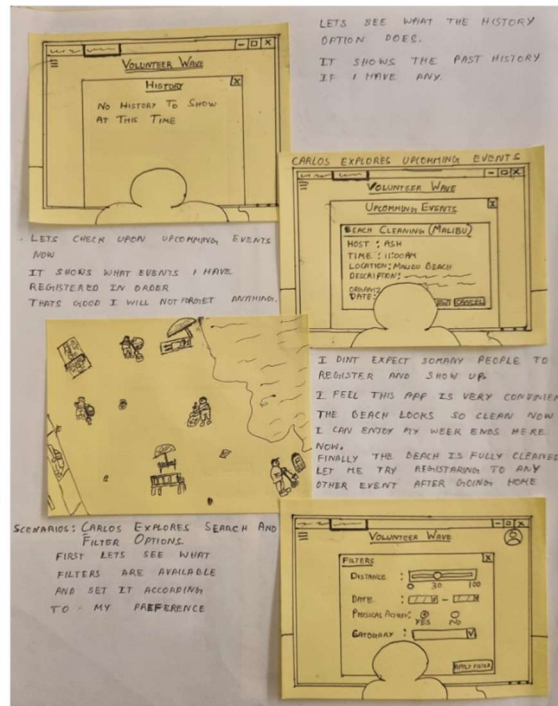 LETS SEE WHAT THE HISTORY
OPTION DOES.
IT SHOWS THE PAST HISTORY
IF I HAVE ANY.
VOLUNTEER WAVE
HISTORY
X
NO HISTORY TO SHOW
AT THIS TIME
CARLOS EXPLORES UPCOMMING EVENTS
VOLUNTEER WAVE
UPCOMMING EVENTS
X
BEACH CLEANING (MALIBU)
HOST : ASH
TIME : 11:00AM
LOCATION: MALIBU BEACH
DESCRIPTION:
ORGANIZ
DATE:
CANCEL
LETS CHECK UPON UPCOMMING EVENTS
NOW
IT SHOWS WHAT EVENTS I HAVE
REGISTERED IN ORDER
THATS GOOD I WILL NOT FORGET ANYTHING.
I DINT EXPECT SOMANY PEOPLE TO
REGISTER AND SHOW UP.
I FEEL THIS APP IS VERY CONVINIEN
THE BEACH LOOKS SO CLEAN NOW
I CAN ENJOY MY WEEK ENDS HERE
NOW.
FINALLY THE BEACH IS FULLY CLEANED
LET ME TRY REGISTARING TO ANY
OTHER EVENT AFTER GOING HOME
SCENARIOS: CARLOS EXPLORES SEARCH AND
FILTER OPTIONS.
FIRST LETS SEE WHAT
FILTERS ARE AVAILABLE
AND SET IT ACCORDING
TO MY PREFERENCE
VOLUNTEER WAVE
FILTERS
X
DISTANCE :
0 30 100
DATE :
PHYSICAL ACTIVITY:
YES NO
CATEGORY :
APPLY FILTER